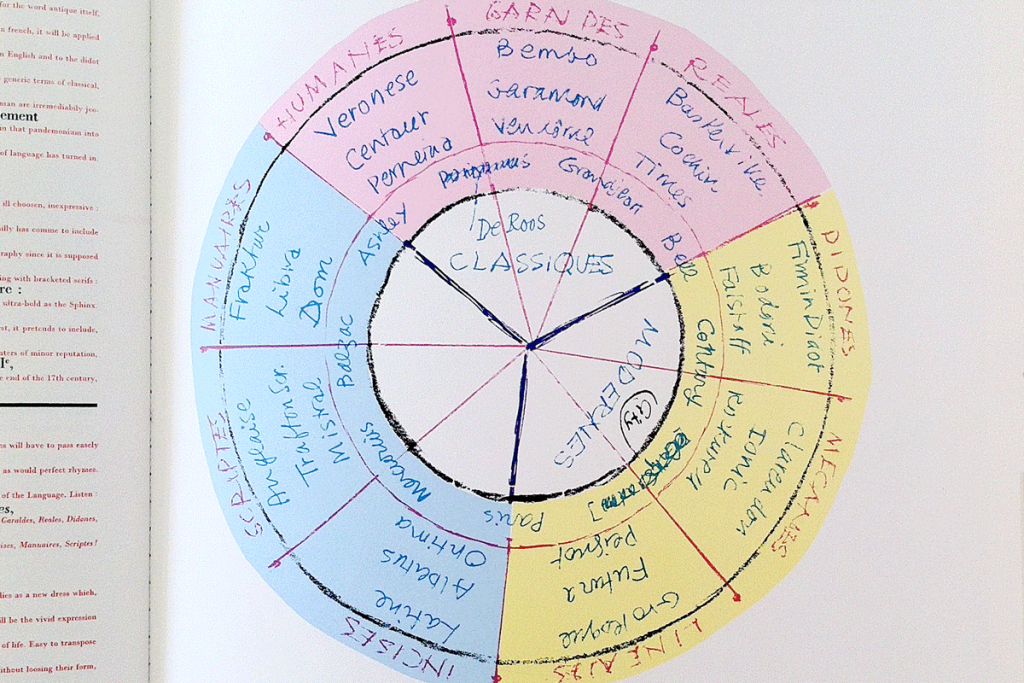 for the word antique itself,
n french, it will be applied
n English and to the didot
generic terms of classical,
man are irremediabily jeo-
ement
n that pandemonium into
of language has turned in.
ill choosen, inexpressive :
has comme to include
graphy since it is supposed
ing with bracketed serifs :
ultra-bold as the Sphinx.
re :
st, it pretends to include,
ters of minor reputation,
e end of the 17th century,
ns will have to pass easily
as would perfect rhymes.
of the Language. Listen :
es,
Garaldes, Réales, Didones,
ises, Manuaires, Scriptes!
lies as a new dress which,
ll be the vivid expression
of life. Easy to transpose
without loosing their form,
HUMANES
Veronese
Centaur
Ashley
GARNDES
Bembo
Garamond
Vendôme
De Roos
REALES
Baskerville
Cochin
Times
Grandjean
Bell
DIDONES
Firmin Didot
Bodoni
Falstaff
Century
MECANES
Clarendon
Ionic
Rockwell
City
LINEALES
Futura
Peignot
INCISES
Latine
Albertus
Optima
Paris
SCRIPTES
Anglaise
Trafton Scr.
Mistral
Mercurius
MANUAIRES
Fraktur
Libra
Dom
Balzac
CLASSIQUES
MODERNES